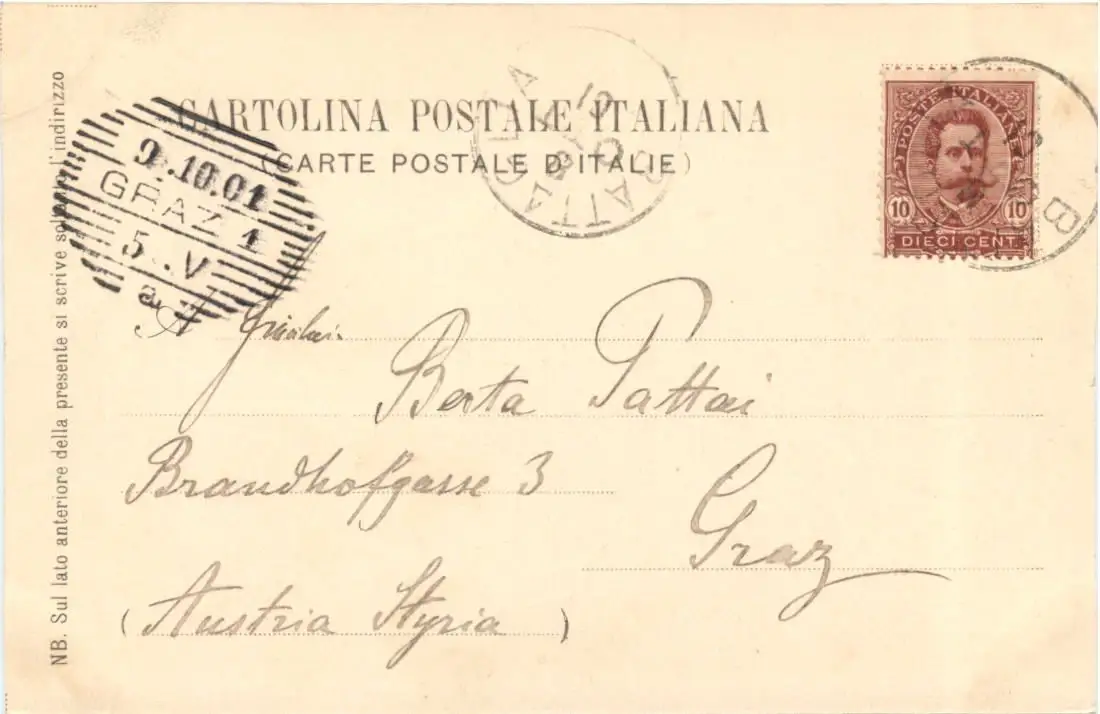 CARTOLINA POSTALE ITALIANA
(CARTE POSTALE D'ITALIE)
NB. Sul lato anteriore della presente si scrive soltanto l'indirizzo
9.10.01
GRAZ 1
5..V
a
BATTAGLIA
POSTE ITALIANE
10 10
DIECI CENT.
A
Berta Pattai
Brandhofgasse 3
Graz
(Austria Styria)